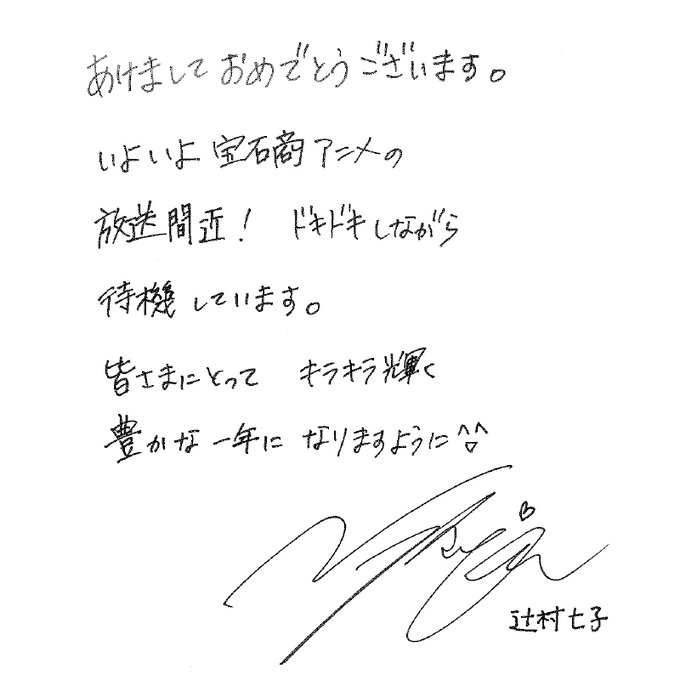 あけましておめでとうございます。
いよいよ宝石商アニメの
放送間近！ ドキドキしながら
待機しています。
皆さまにとって キラキラ輝く
豊かな一年に なりますように^▽^
辻村七子